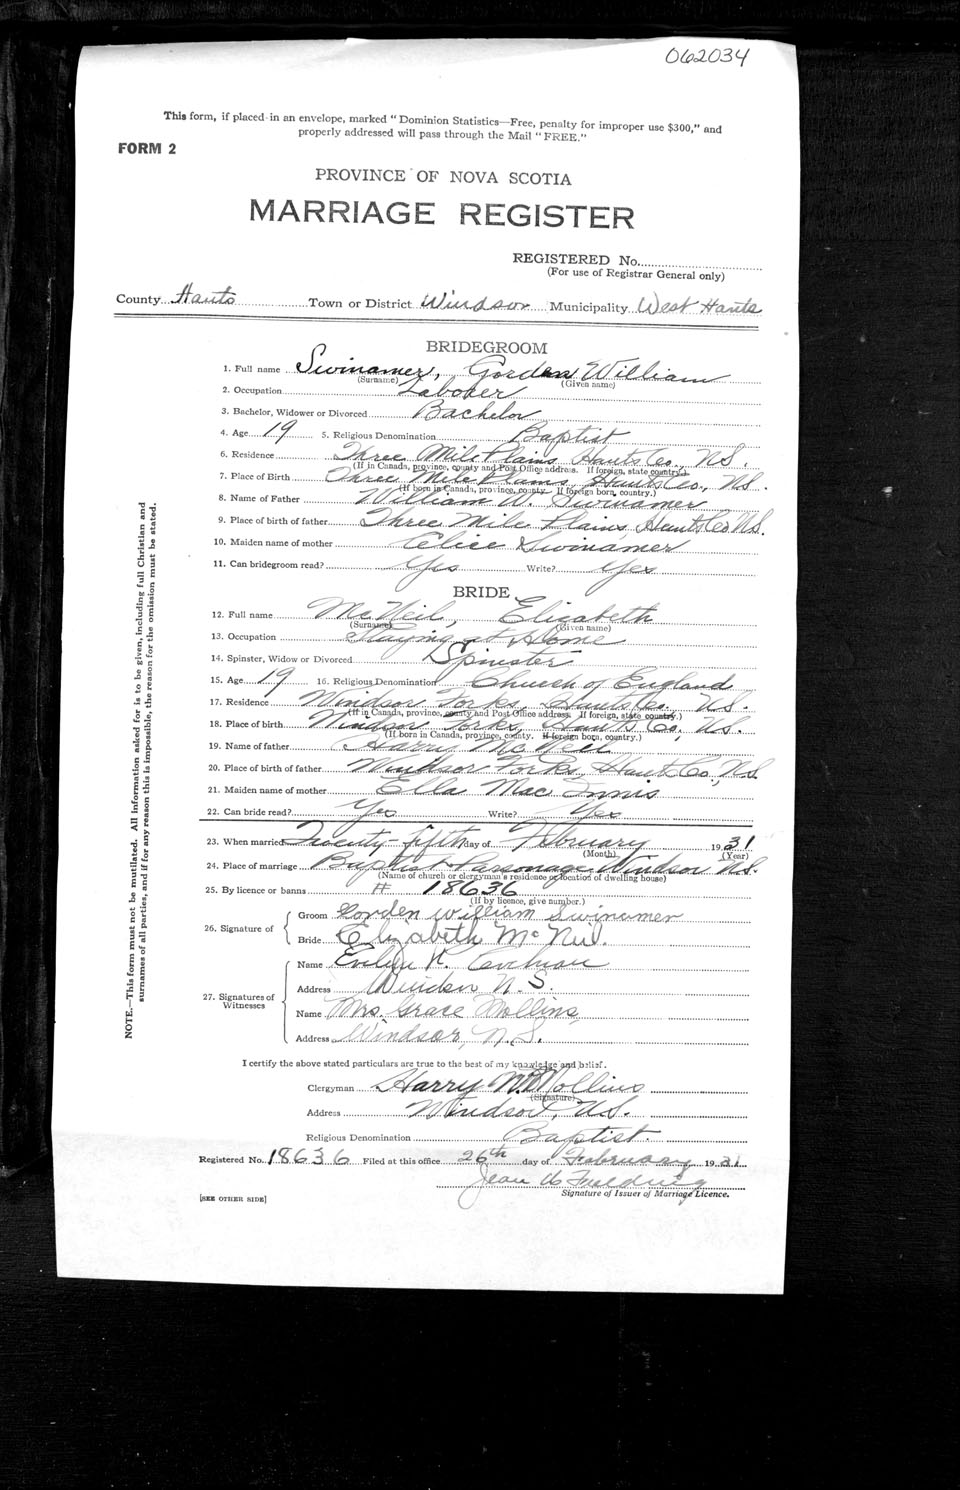 062034
This form, if placed in an envelope, marked "Dominion Statistics—Free, penalty for improper use $300," and
properly addressed will pass through the Mail "FREE."
FORM 2
PROVINCE OF NOVA SCOTIA
MARRIAGE REGISTER
REGISTERED No.
(For use of Registrar General only)
County Hants Town or District Windsor Municipality West Hants
BRIDEGROOM
1. Full name Swinamer, Gorden William
(Surname) (Given name)
2. Occupation Laborer
3. Bachelor, Widower or Divorced Bachelor
4. Age 19 5. Religious Denomination Baptist
6. Residence Three Mile Plains Hants Co., N.S.
(If in Canada, province, county and Post Office address. If foreign, state country.)
7. Place of Birth Three Mile Plains, Hants Co., N.S.
(If born in Canada, province, county. If foreign born, country.)
8. Name of Father William W. Swinamer
9. Place of birth of father Three Mile Plains, Hants Co N.S.
10. Maiden name of mother Elice Swinamer
11. Can bridegroom read? Yes Write? Yes
BRIDE
12. Full name McNeil, Elizabeth
(Surname) (Given name)
13. Occupation Staying at Home
14. Spinster, Widow or Divorced Spinster
15. Age 19 16. Religious Denomination Church of England
17. Residence Windsor Forks, Hants Co., N.S.
(If in Canada, province, county and Post Office address. If foreign, state country.)
18. Place of birth Windsor Forks, Hants Co, N.S.
(If born in Canada, province, county. If foreign born, country.)
19. Name of father Harry McNeil
20. Place of birth of father Windsor Forks, Hants Co., N.S
21. Maiden name of mother Ella MacInnis
22. Can bride read? Yes Write? Yes
23. When married Twenty-fifth day of February 1931
(Month) (Year)
24. Place of marriage Baptist Parsonage, Windsor N.S.
(Name of church or clergyman's residence or location of dwelling house)
25. By licence or banns # 18636
(If by licence, give number.)
26. Signature of
Groom Gorden William Swinamer
Bride Elizabeth McNeil.
27. Signatures of Witnesses
Name Evelyn K. Cochran
Address Windsor N.S.
Name Mrs. Grace Mollins,
Address Windsor, N.S.
I certify the above stated particulars are true to the best of my knowledge and belief.
Clergyman Harry Mollins
(Signature)
Address Windsor, N.S.
Religious Denomination Baptist.
Registered No. 18636 Filed at this office 26th day of February 1931
Jean
Signature of Issuer of Marriage Licence.
[SEE OTHER SIDE]
NOTE.—This form must not be mutilated. All information asked for is to be given, including full Christian and
surnames of all parties, and if for any reason this is impossible, the reason for the omission must be stated.